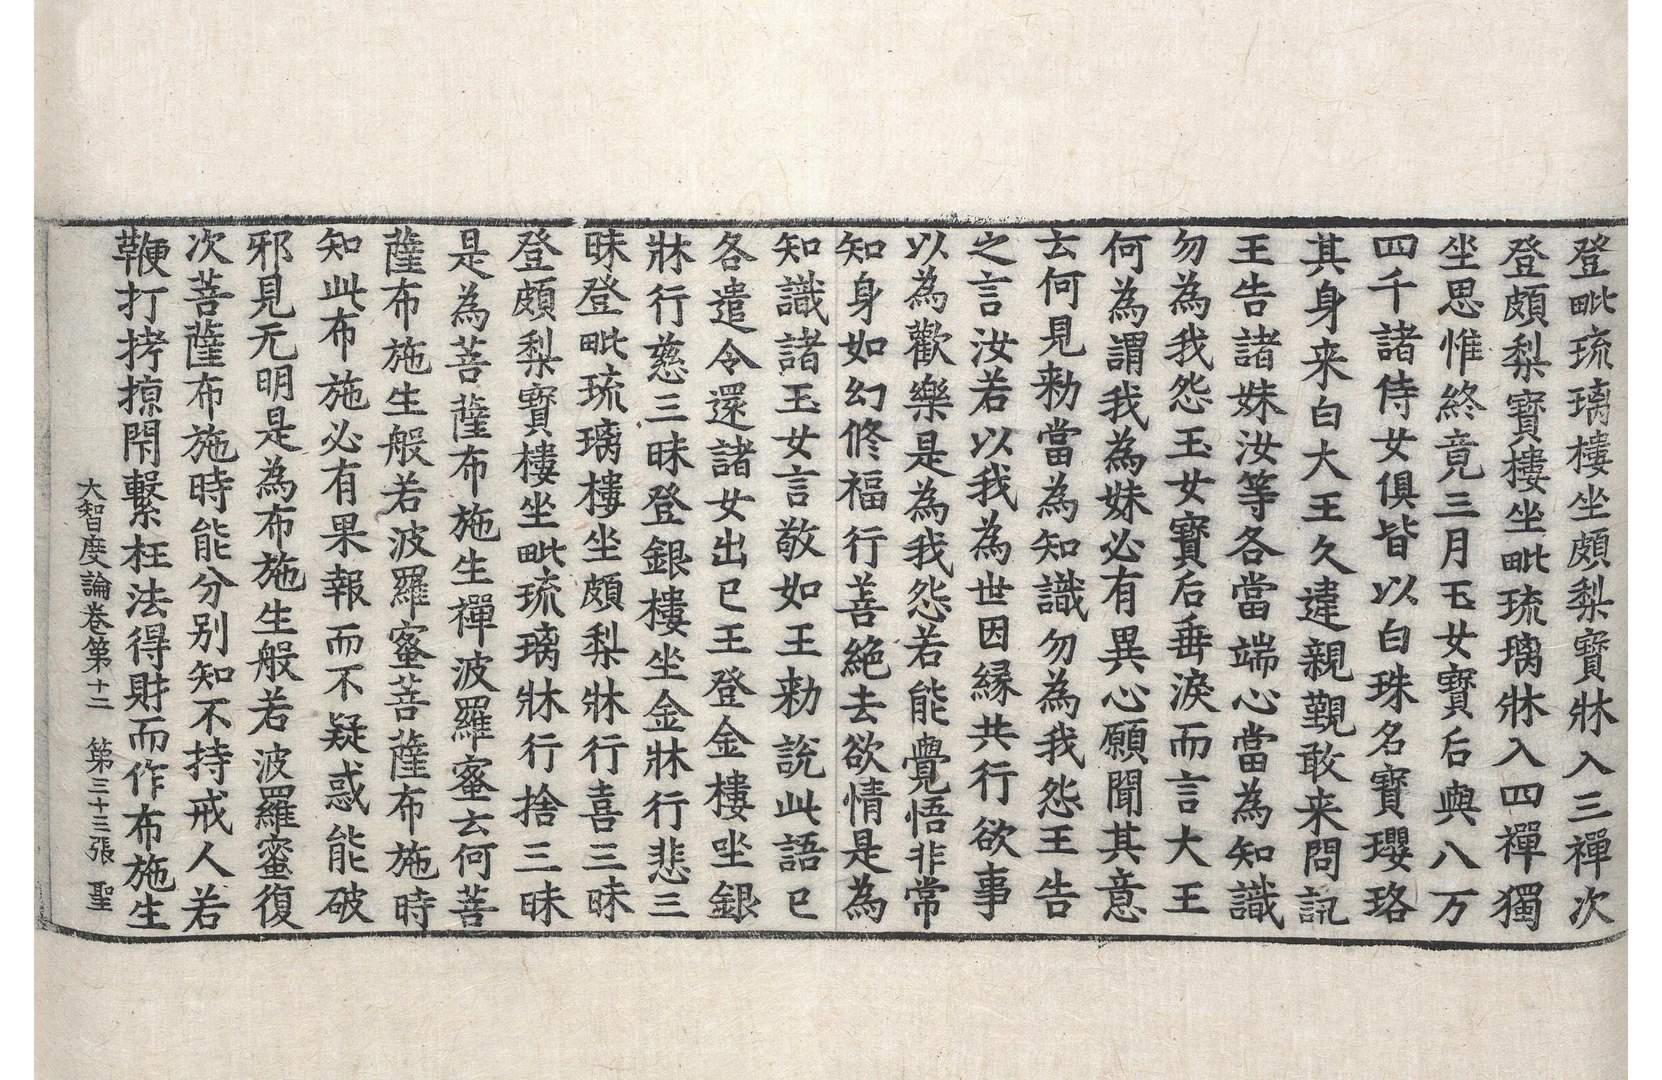 登毗琉璃樓坐頗梨寶牀入三禪次
登頗梨寶樓坐毗琉璃牀入四禪獨
坐思惟終竟三月玉女寶后與八万
四千諸侍女俱皆以白珠名寶瓔珞
其身来白大王久違親覲敢来問訊
王告諸妹汝等各當端心當為知識
勿為我怨玉女寶后垂淚而言大王
何為謂我為妹必有異心願聞其意
去何見勑當為知識勿為我怨王告
之言汝若以我為世因縁共行欲事
以為歡樂是為我怨若能覺悟非常
知身如幻修福行善絶去欲情是為
知識諸玉女言敬如王勑說此語已
各遣令還諸女出已王登金樓坐銀
牀行慈三昧登銀樓坐金牀行悲三
昧登毗琉璃樓坐頗梨牀行喜三昧
登頗梨寶樓坐毗琉璃牀行捨三昧
是為菩薩布施生禪波羅蜜云何菩
薩布施生般若波羅蜜菩薩布施時
知此布施必有果報而不疑惑能破
邪見无明是為布施生般若波羅蜜復
次菩薩布施時能分別知不持戒人若
鞭打拷掠閇繫枉法得財而作布施生
大智度論卷第十二 第三十三張 聖